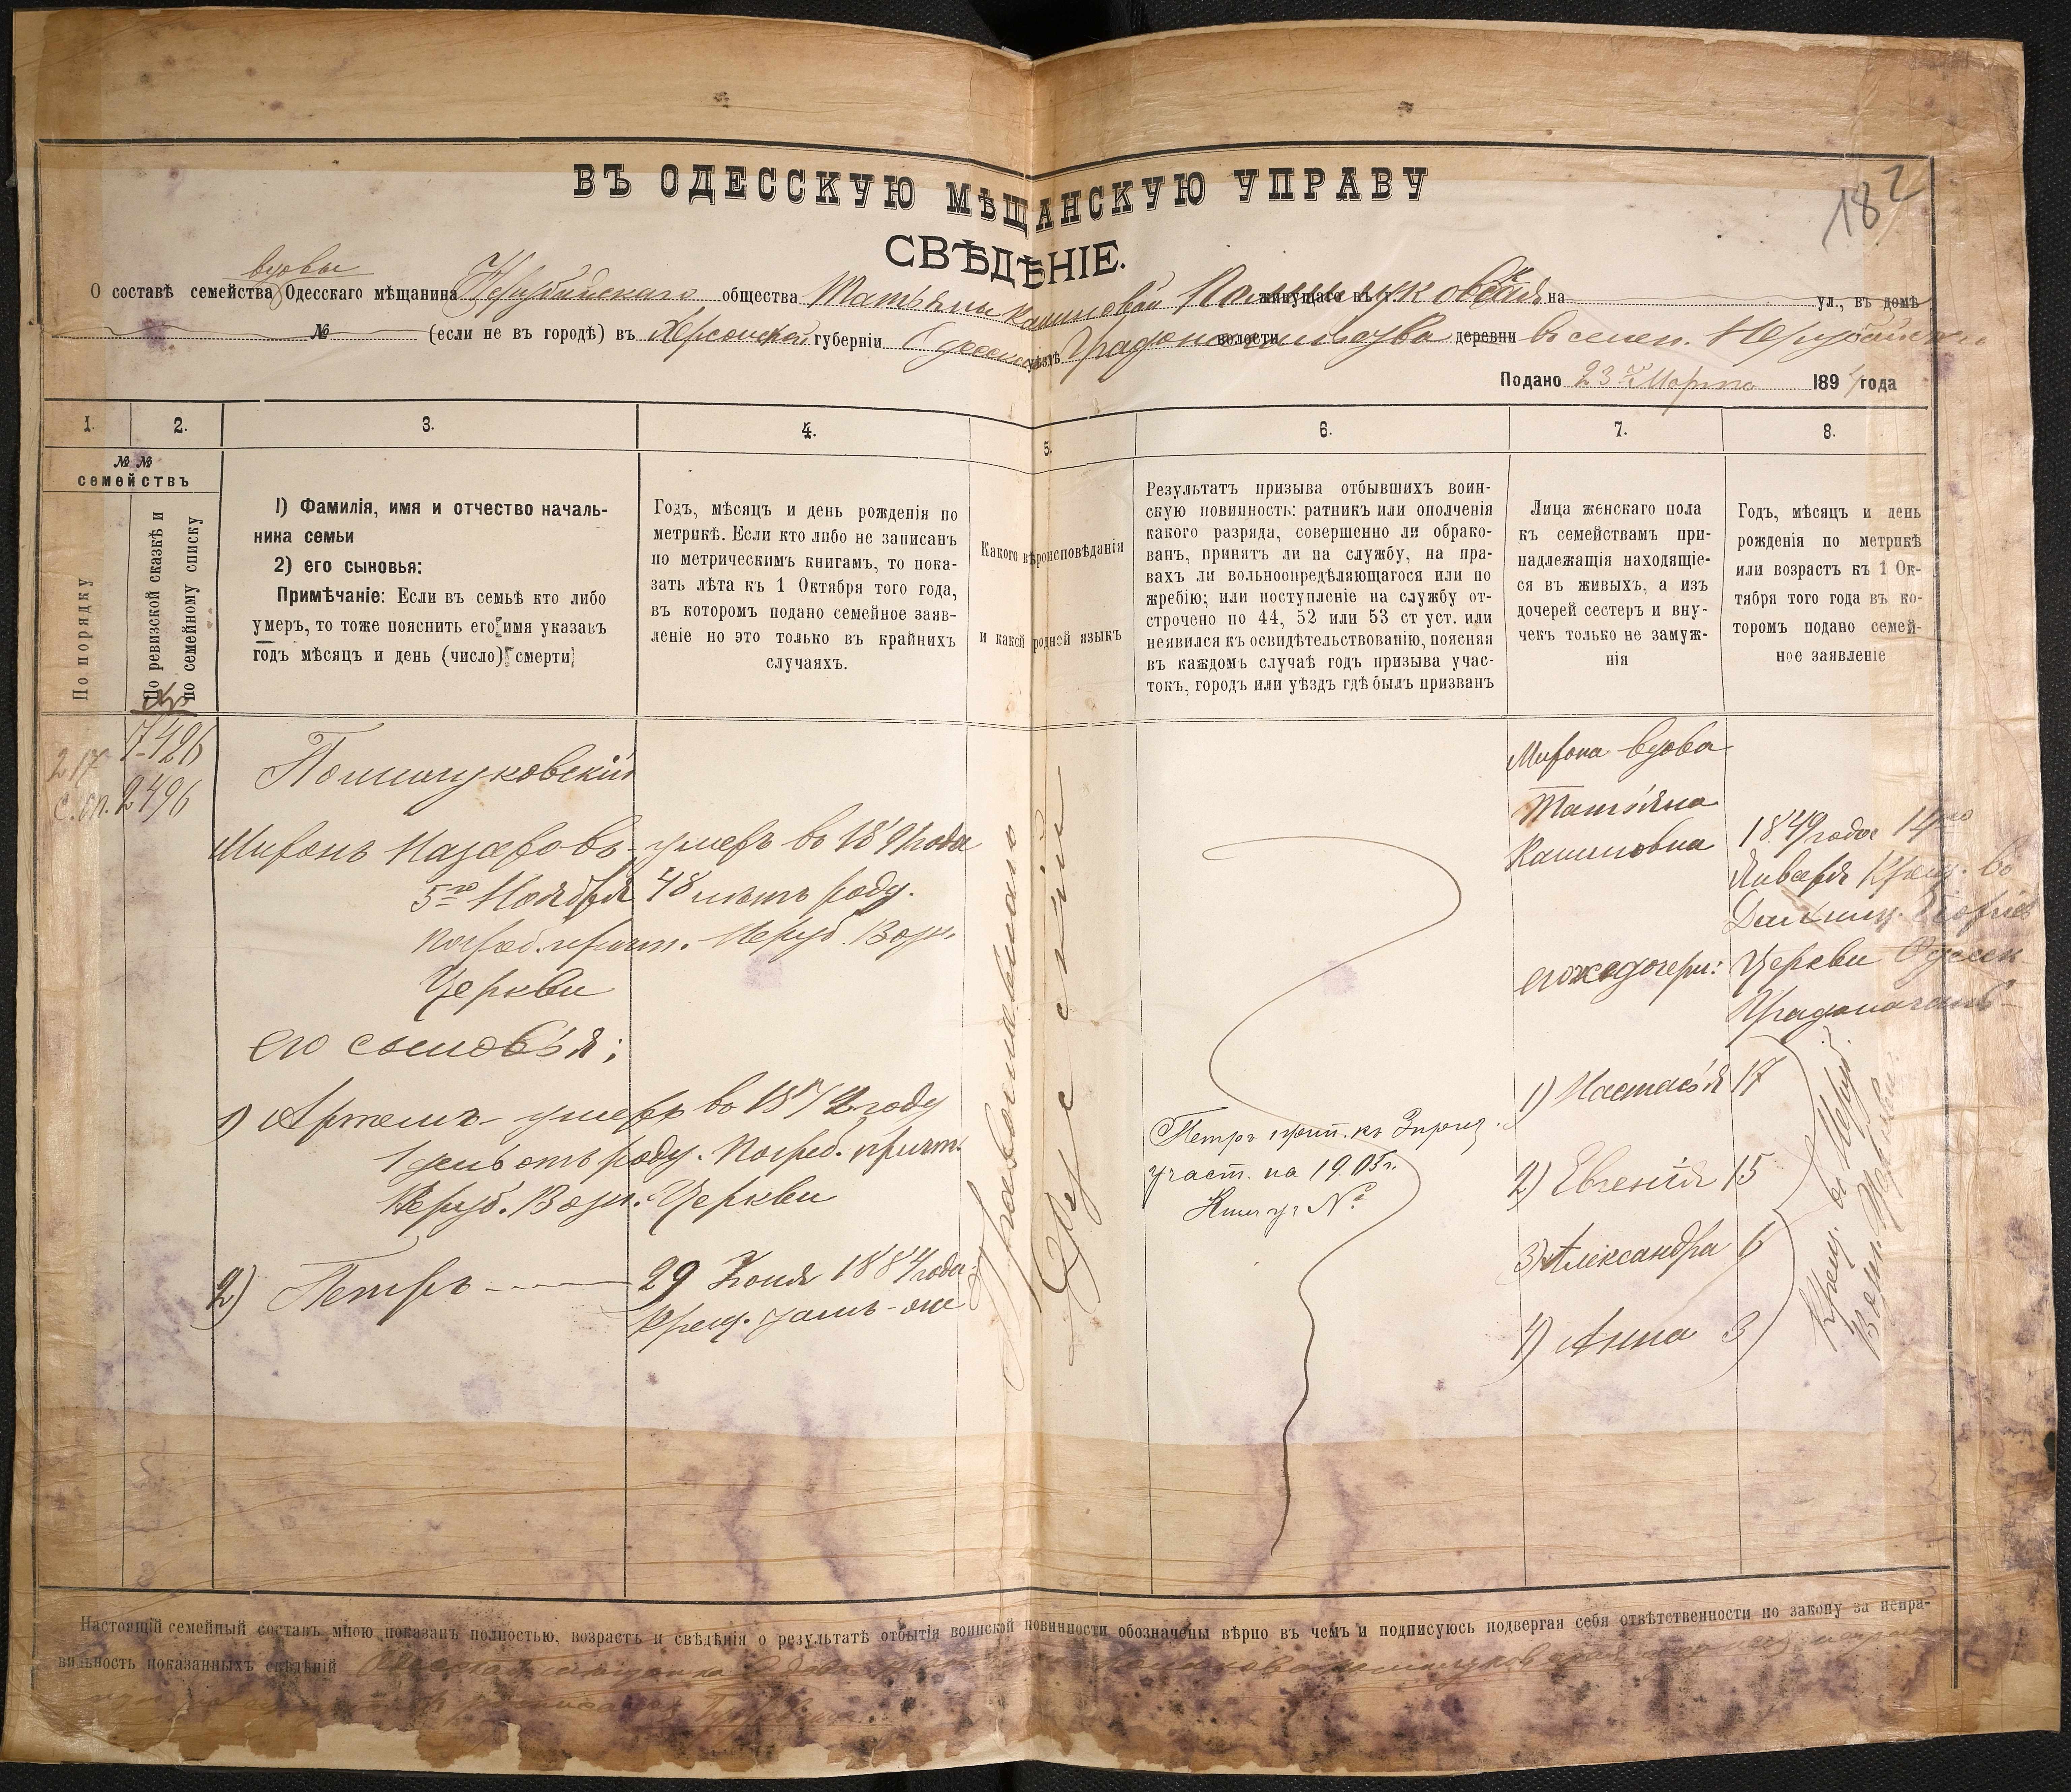 182
ВЪ ОДЕССКУЮ МѢЩАНСКУЮ УПРАВУ
СВѢДѢНІЕ.
вдовы
О составѣ семейства Одесскаго мѣщанина Нерубайскаго общества Татьяны живущаго въ на ул., въ домѣ
№ (если не въ городѣ) въ Херсонской губерніи Одесскаго уѣздѣ Градоначальства волости деревни в селен. Нерубайскі
Подано 23го Марта 189 года
1.
2.
3.
4.
5.
6.
7.
8.
№ №
семействъ
По порядку
По ревизской сказкѣ и
по семейному списку
1) Фамилія, имя и отчество началь-
ника семьи
2) его сыновья:
Примѣчаніе: Если въ семьѣ кто либо
умеръ, то тоже пояснить его имя указавъ
годъ мѣсяцъ и день (число) смерти
Годъ, мѣсяцъ и день рожденія по
метрикѣ. Если кто либо не записанъ
по метрическимъ книгамъ, то пока-
зать лѣта къ 1 Октября того года,
въ которомъ подано семейное заяв-
леніе но это только въ крайнихъ
случаяхъ.
Какого вѣроисповѣданія
и какой родной языкъ
Результатъ призыва отбывшихъ воин-
скую повинность: ратникъ или ополченія
какого разряда, совершенно ли обрако-
ванъ, принятъ ли на службу, на пра-
вахъ ли вольноопредѣляющагося или по
жребію; или поступленіе на службу от-
строчено по 44, 52 или 53 ст уст. или
неявился къ освидѣтельствованію, поясняя
въ каждомъ случаѣ годъ призыва учас-
токъ, городъ или уѣздъ гдѣ былъ призванъ
Лица женскаго пола
къ семействамъ при-
надлежащія находящіе-
ся въ живыхъ, а изъ
дочерей сестеръ и вну-
чекъ только не замуж-
нія
Годъ, мѣсяцъ и день
рожденія по метрикѣ
или возрастъ къ 1 Ок-
тября того года въ ко-
торомъ подано семей-
ное заявленіе
217 7-426
с. сп. 2496
Полищуковскій
Миронъ Назаровъ умеръ во 1891 года
5го Ноября 48 летъ роду.
Погреб. причт. Неруб. Возн.
Церкви
его сыновья:
1) Артемъ - умеръ во году
1 день отъ роду. Погреб. причт.
Неруб. Возн. Церкви
2) Петръ — 29 Іюня 1884 года
Крещ. тамъ-же
Православнаго
Русскій
Петръ прип. къ призыв.
участ. на 1905 г.
№
Мирона вдова
Татьяна
его же дочери:
1) Настасья 17
2) Евгенія 15
3) Александра 6
4) Анна 3
1849 года 14го
Января Крещ. во
Церкви Одесск
Градоначаль-
Крещ. въ Неруб.
Возн. Церкви.
Настоящій семейный составъ мною показанъ полностью, возрастъ и свѣдѣнія о результатѣ отбытія воинской повинности обозначены вѣрно въ чемъ и подписуюсь подвергая себя отвѣтственности по закону за неира-
вильность показанныхъ свѣдѣній Одесская мѣщанка вдова